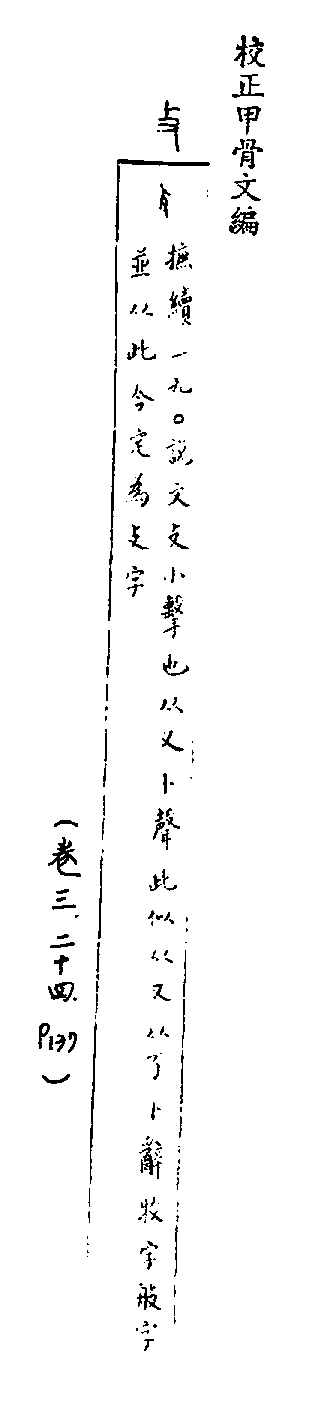 校正甲骨文編
攴
摭續一九〇說文攴小擊也从又卜聲此似从又从 卜辭牧字般字
並从此今定為攴字
(卷三.二十四.P137)